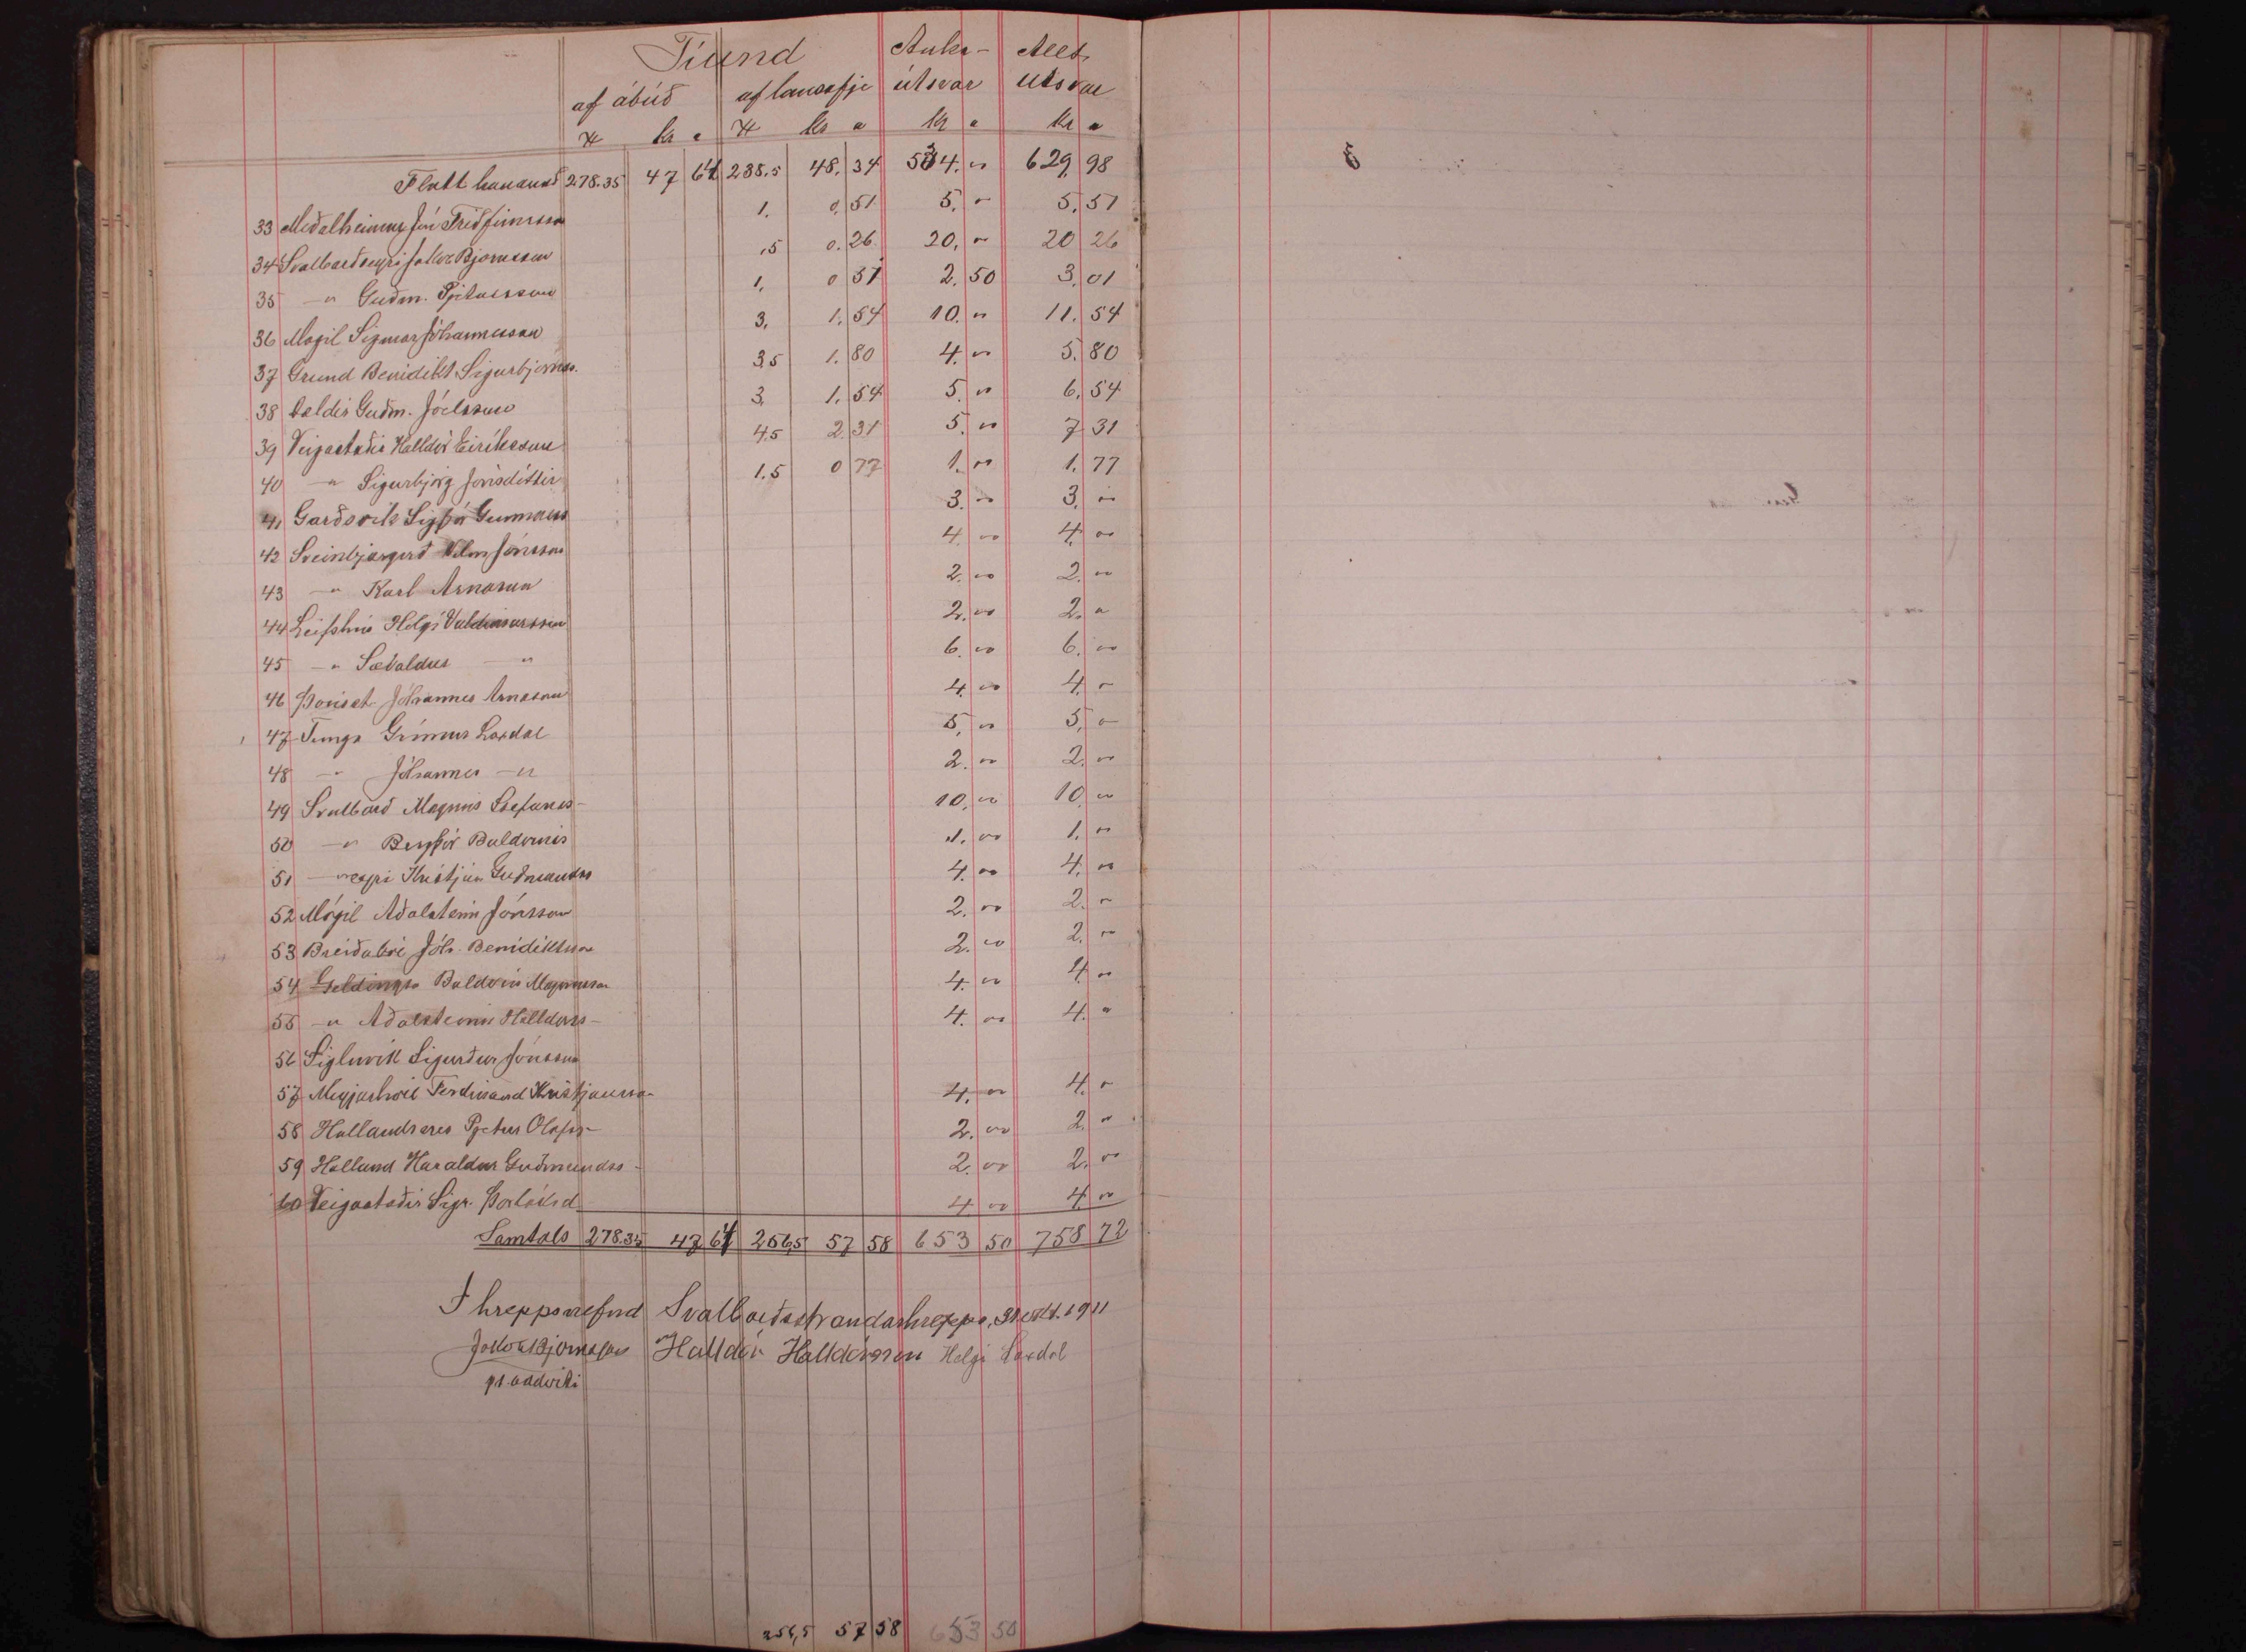 Tíund Auka- Allt
af ábúð af lausafje útsvar útsvar
kr a kr a kr a kr a
Flutt hanað 278.35 47 64 238.5 48. 34 534. " 629. 98
33 Meðalheimur Jón Friðfinnsson 1. 0. 51 5. " 5. 51
34 Svalbarðseyri Jakob Bjornsson .5 0. 26 20. " 20 26
35 -"- Guðm. Pjetursson 1. 0 51 2. 50 3. 01
36 Mógil Sigmar Jóhannesson 3. 1. 54 10. " 11. 54
37 Grund Benidikt Sigurbjörnss. 3.5 1. 80 4. " 5. 80
38 Guðm. Jóelsson 3. 1. 54 5. " 6. 54
39 Veigastaðir Halldór Eiríksson 4.5 2. 31 5. " 7 31
40 -"- Sigurbjörg Jónsdóttir 1.5 0 77 1. " 1. 77
41 Garðsvík Sigfús Gunnarss 3. " 3. "
42 Sveinbjargerð Jónsson 4. " 4. "
43 -"- Karl Arnason 2. " 2. "
44 Leifshús Helgi Valdimarsson 2. " 2. "
45 -"- Sævaldur -"- 6. " 6. "
46 Þórisst. Jóhannes Arnason 4. " 4. "
47 Tunga Grímur Laxdal 5. " 5. "
48 -"- Jóhannes -"- 2. " 2. "
49 Svalbarð Magnús Stefánss- 10. " 10. "
50 -"- Bergþór Baldvinss 1. " 1. "
51 -"-eyri Kristján Guðmundss 4. " 4. "
52 Mógil Aðalsteinn Jónsson 2. " 2. "
53 Breiðaból Jóh. Benidiktsson 2. " 2. "
54 Geldingsá Baldvin Magnússon 4. " 4. "
55 -"- Aðalsteinn Halldórss- 4. " 4. "
56 Sigluvík Sigurður Jónsson
57 Meyjarhóll Ferdinand Kristjánsson 4. " 4. "
58 Hallandsnes Pjetur Olafss- 2. " 2. "
59 Halland Haraldur Guðmundss- 2. " 2. "
60 Veigastaðir Sigr. Þorláksd. 4. " 4. "
Samtals 278.35 47 64 256,5 57 58 653 50 758 72
I hreppsnefnd Svalbarðsstrandarhrepps, 31 okt. 1911
Jakob Bjornsson Halldór Halldórsson Helgi Laxdal
p.t. oddviti
256,5 57 58 653 50